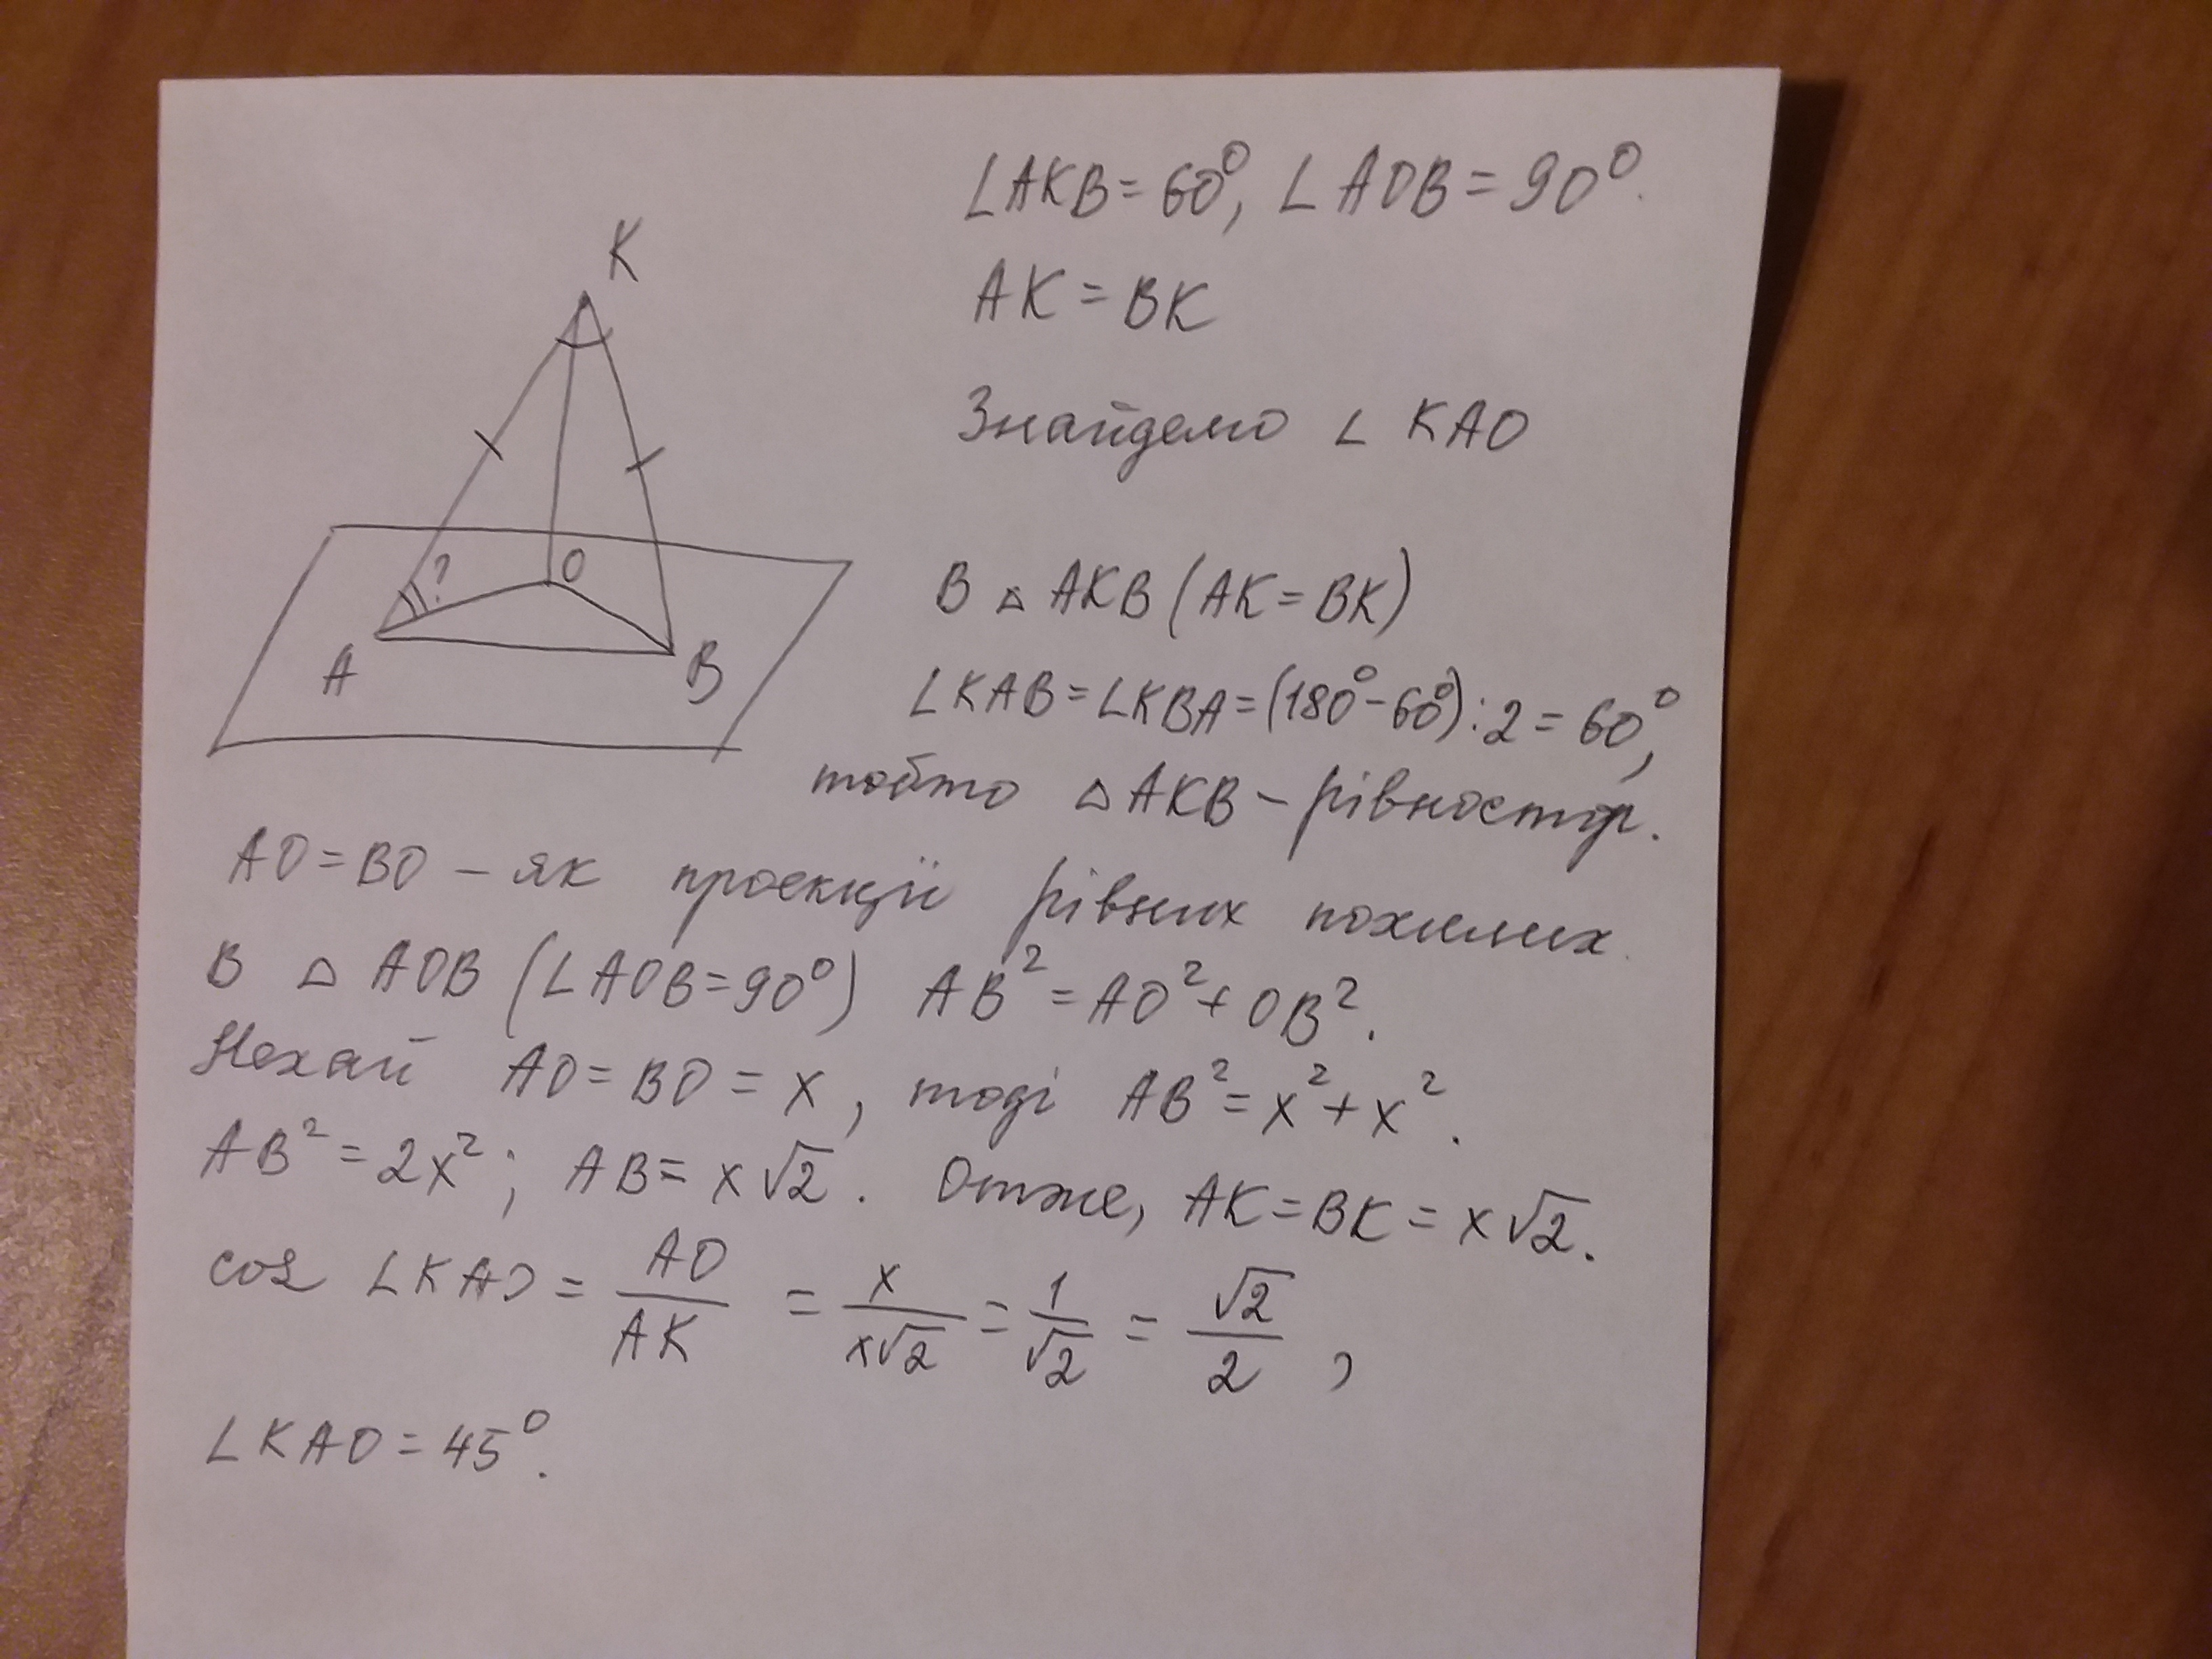 ∠AKB = 60⁰, ∠AOB = 90⁰.
AK = BK
Знайдемо ∠ KAO
K
O
?
A
B
В △ AKB (AK = BK)
∠KAB = ∠KBA = (180⁰ - 60⁰) : 2 = 60⁰,
тобто △ AKB – рівностор.
AO = BO – як проекції рівних похилих.
В △ AOB (∠AOB = 90⁰) AB² = AO² + OB².
Нехай AO = BO = x, тоді AB² = x² + x².
AB² = 2x²; AB = x√2. Отже, AK = BK = x√2.
cos ∠KAO = AO/AK = x/x√2 = 1/√2 = √2/2,
∠KAO = 45⁰.